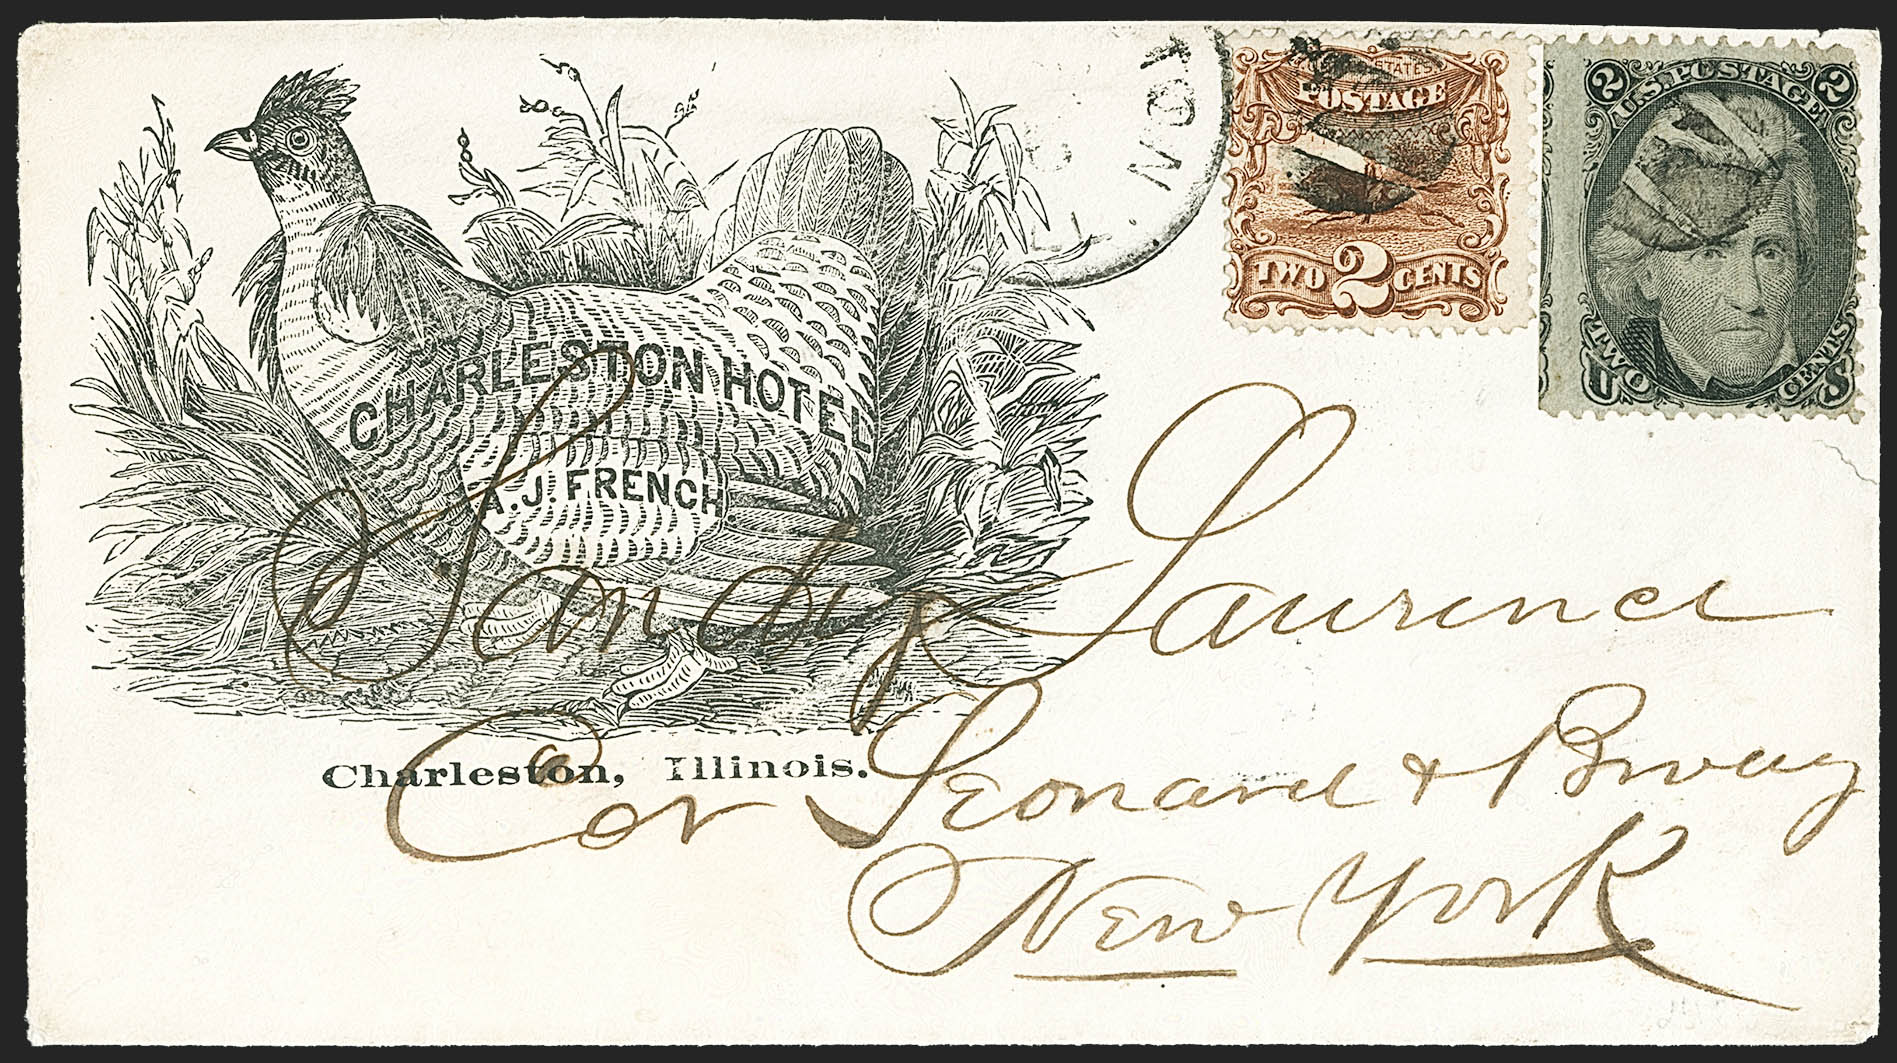 CHARLESTON HOTEL
A. J. FRENCH.
Charleston, Illinois.
TON
STATES
POSTAGE
TWO 2 CENTS
2 U.S. POSTAGE. 2
TWO CENTS
U S
Sandy Laurence
Cor Leonard & Bway
New York